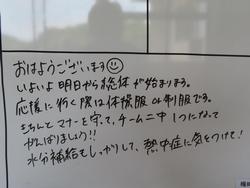 おはようございます☺
いよいよ明日から総体が始まります。
応援に行く際は体操服or制服です。
きちんとマナーを守って、チーム二中 1つになって
がんばりましょう!!
水分補給をしっかりして、熱中症に気をつけて!